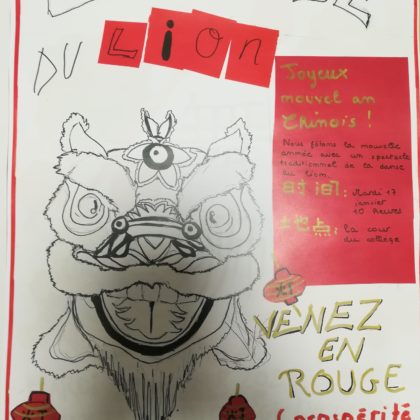 DU Lion
Joyeux
nouvel an
Chinois !
Nous fêtons la nouvelle
année avec un spectacle
traditionnel de la danse
du lion.
时间: Mardi 17
janvier
10 heures
地点: la cour
du collège
VENEZ
EN
ROUGE
(prospérité